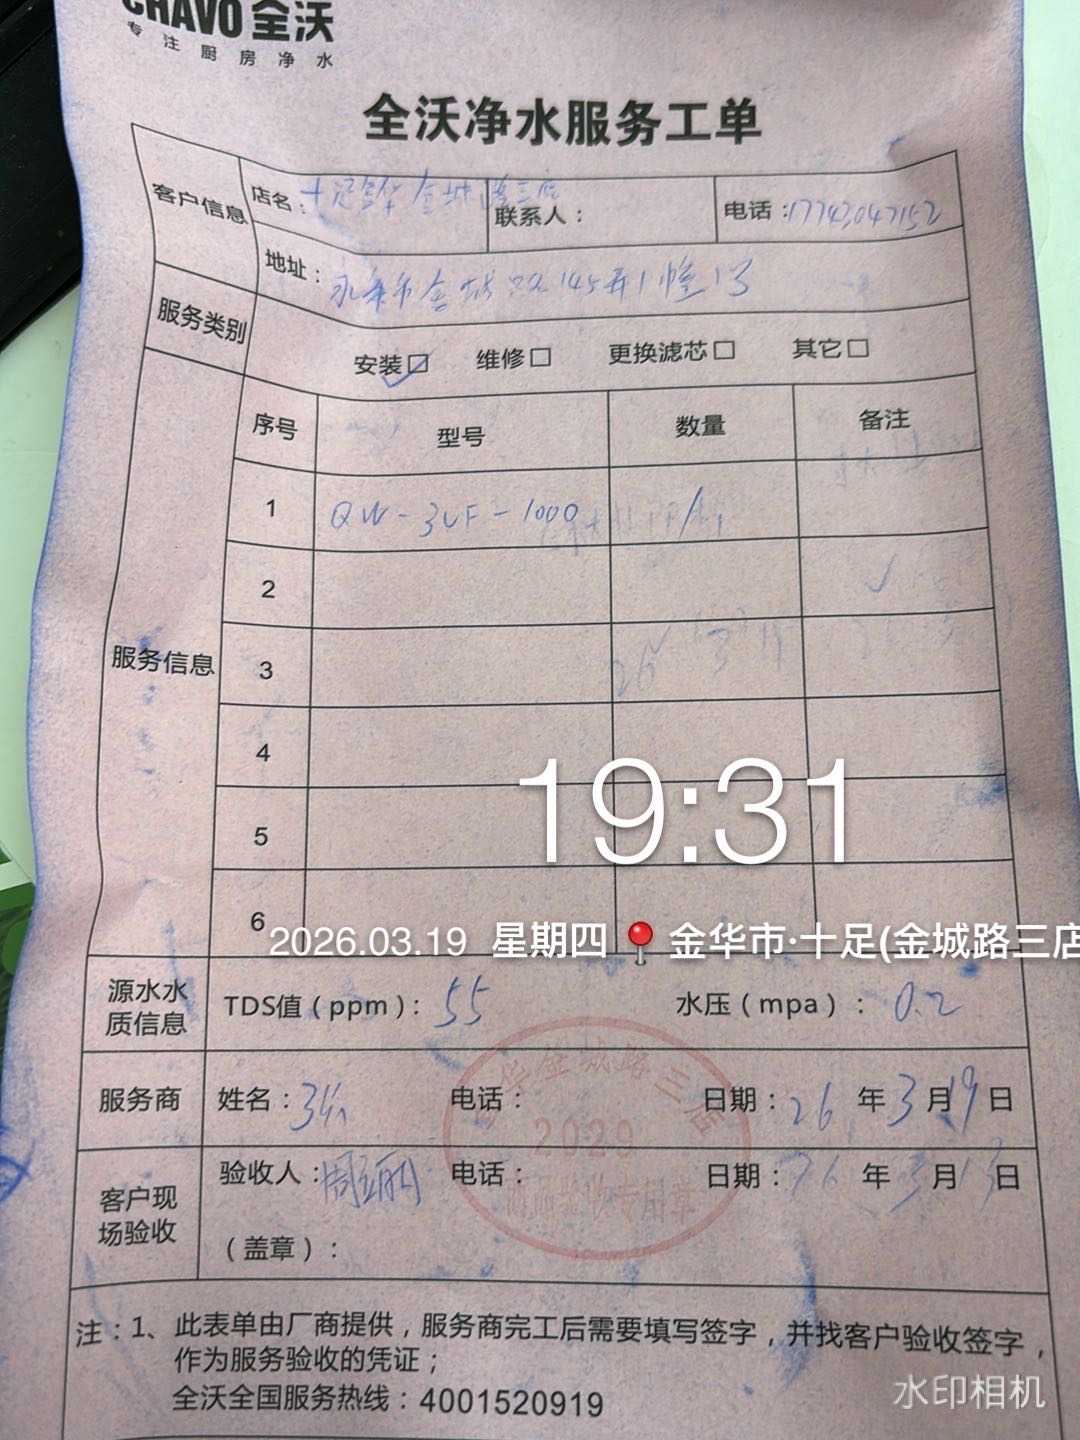 CHAVO 全沃
专注厨房净水
全沃净水服务工单
客户信息 店名：十足金华金城路三店 联系人： 电话：17743047152
地址：永康市金城路145弄1幢13
服务类别 安装☑ 维修□ 更换滤芯□ 其它□
服务信息 序号 型号 数量 备注
1 QW-3UF-1000
2
3
4
5
6
19:31
2026.03.19 星期四 金华市·十足(金城路三店
源水水质信息 TDS值（ppm）：55 水压（mpa）：0.2
服务商 姓名： 电话： 日期：26年3月19日
客户现场验收 验收人：周 电话： 日期：26年3月13日
（盖章）：
华金城路三店
2020
商品验收专用章
注：1、此表单由厂商提供，服务商完工后需要填写签字，并找客户验收签字，
作为服务验收的凭证；
全沃全国服务热线：4001520919
水印相机